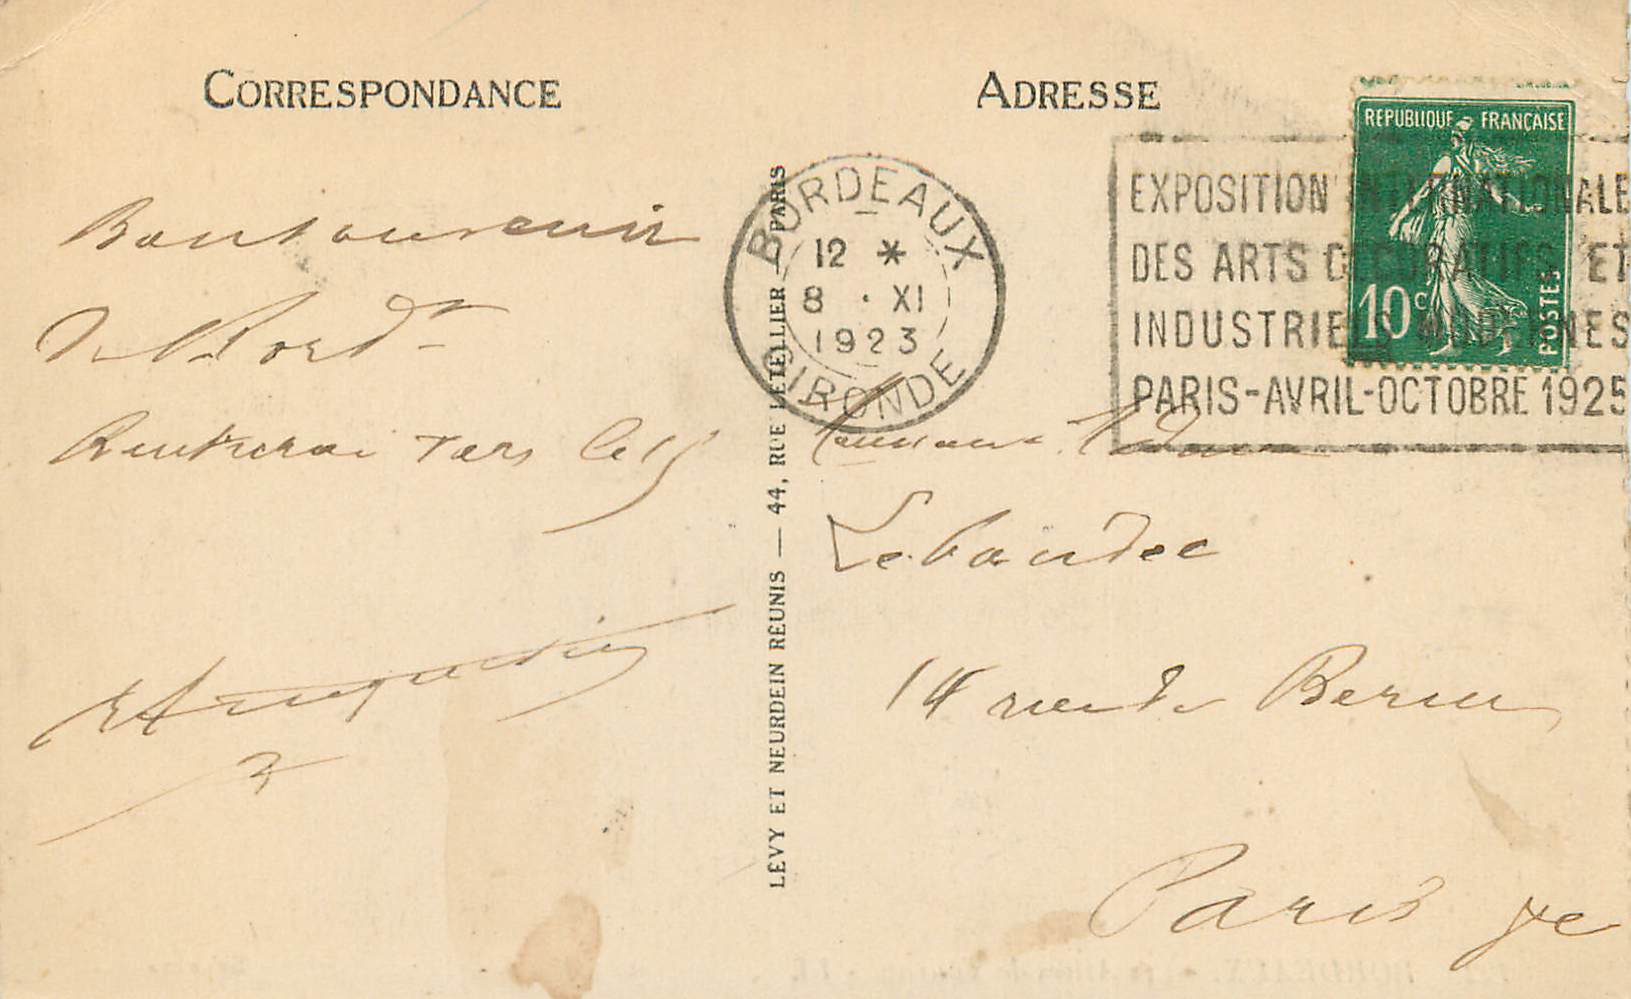 CORRESPONDANCE
Bon souvenir
de Bord^x
Rentrerai vers le 15
ADRESSE
BORDEAUX
12 *
8 · XI
1923
GIRONDE
EXPOSITION INTERNATIONALE
DES ARTS DECORATIFS ET
INDUSTRIELS MODERNES
PARIS-AVRIL-OCTOBRE 1925
REPUBLIQUE FRANÇAISE
10c
POSTES
LÉVY ET NEURDEIN RÉUNIS — 44, RUE LETELLIER — PARIS
Monsieur
14 rue de Berne
Paris